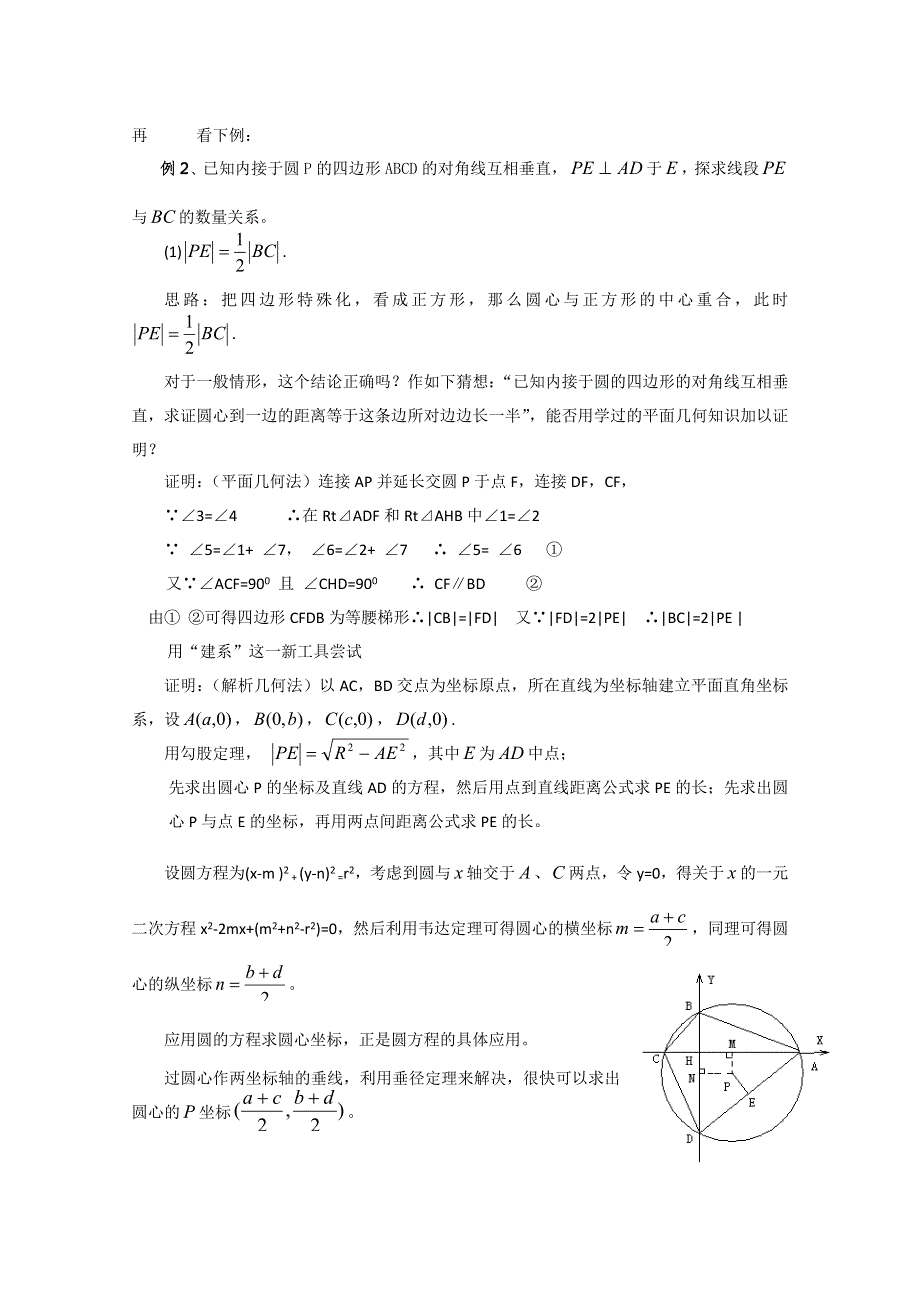 再 看下例：
例2、已知内接于圆P的四边形ABCD的对角线互相垂直，PE⊥AD于E，探求线段PE
与BC的数量关系。
(1)|PE|=1/2|BC|．
思路：把四边形特殊化，看成正方形，那么圆心与正方形的中心重合，此时
|PE|=1/2|BC|．
对于一般情形，这个结论正确吗？作如下猜想：“已知内接于圆的四边形的对角线互相垂
直，求证圆心到一边的距离等于这条边所对边边长一半”，能否用学过的平面几何知识加以证
明？
证明：（平面几何法）连接 AP 并延长交圆 P 于点 F，连接 DF，CF，
∵∠3=∠4 ∴在 Rt⊿ADF 和 Rt⊿AHB 中∠1=∠2
∵ ∠5=∠1+ ∠7， ∠6=∠2+ ∠7 ∴ ∠5= ∠6 ①
又∵∠ACF=90⁰ 且 ∠CHD=90⁰ ∴ CF∥BD ②
由① ②可得四边形 CFDB 为等腰梯形∴|CB|=|FD| 又∵|FD|=2|PE| ∴|BC|=2|PE |
用“建系”这一新工具尝试
证明：（解析几何法）以 AC，BD 交点为坐标原点，所在直线为坐标轴建立平面直角坐标
系，设A(a,0)，B(0,b)，C(c,0)，D(d,0)．
用勾股定理， |PE|=√(R²−AE²)，其中E为AD中点；
先求出圆心 P 的坐标及直线 AD 的方程，然后用点到直线距离公式求 PE 的长；先求出圆
心 P 与点 E 的坐标，再用两点间距离公式求 PE 的长。
设圆方程为(x-m )²₊(y-n)²₌r²，考虑到圆与x轴交于A、C两点，令 y=0，得关于x的一元
二次方程 x²-2mx+(m²+n²-r²)=0，然后利用韦达定理可得圆心的横坐标m=(a+c)/2，同理可得圆
心的纵坐标n=(b+d)/2。
应用圆的方程求圆心坐标，正是圆方程的具体应用。
过圆心作两坐标轴的垂线，利用垂径定理来解决，很快可以求出
圆心的P坐标((a+c)/2,(b+d)/2)。
Y
B
M
X
C
H
A
N
P
E
D